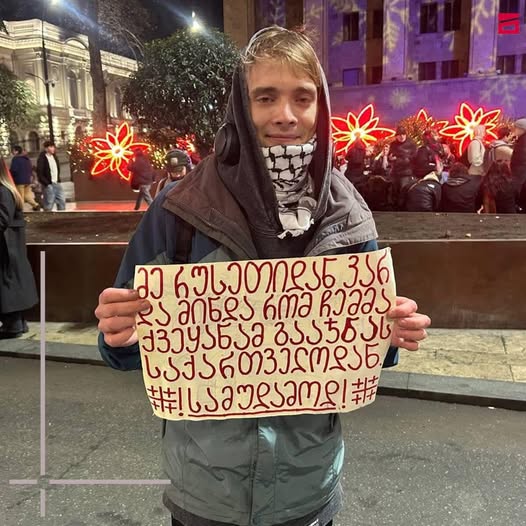 მე რუსეთიდან ვარ
და მინდა რომ ჩემმა
ქვეყანამ გააჯნას
საქართველოდან
##!სამუდამოდ!##